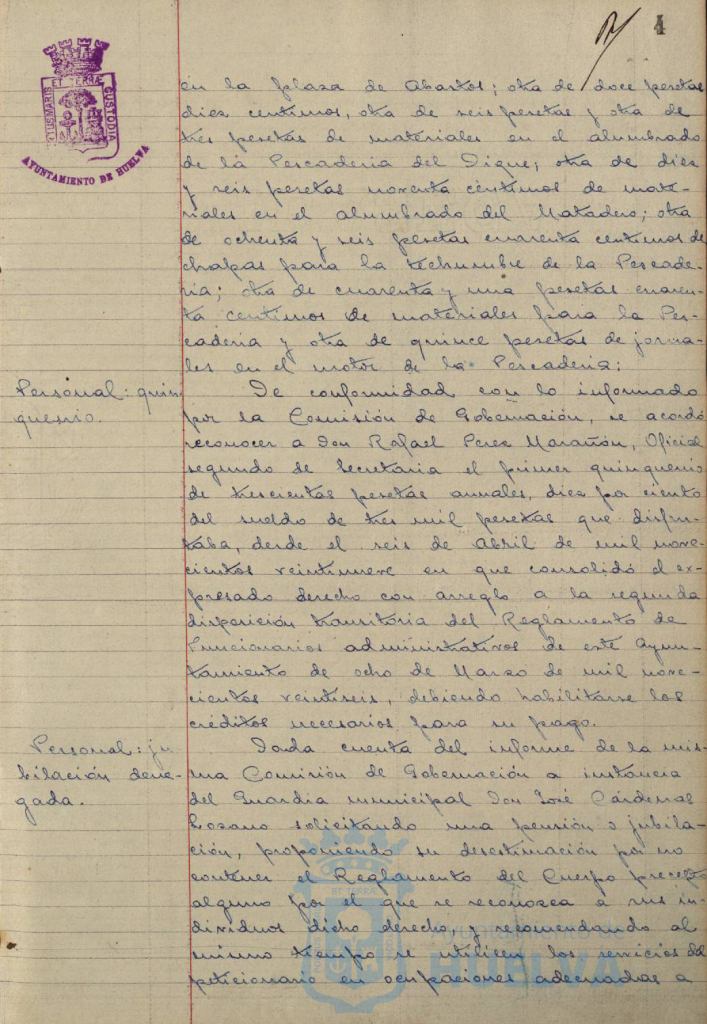 4
PORTUS MARIS ET TERRAE CUSTODIA
AYUNTAMIENTO DE HUELVA
en la plaza de Abastos; otra de doce pesetas
diez centimos, otra de seis pesetas y otra de
tres pesetas de materiales en el alumbrado
de la Pescaderia del Dique; otra de diez
y seis pesetas noventa centimos de mate-
riales en el alumbrado del Matadero; otra
de ochenta y seis pesetas cuarenta centimos de
chapas para la techumbre de la Pescade-
ria; otra de cuarenta y una pesetas cuaren-
ta centimos de materiales para la Pes-
caderia y otra de quince pesetas de jorna-
les en el motor de la Pescaderia;
Personal: quin
quenio.
De conformidad con lo informado
por la Comisión de Gobernación, se acordó
reconocer a Don Rafael Perez Marañón, Oficial
segundo de Secretaria el primer quinquenio
de trescientas pesetas anuales, diez por ciento
del sueldo de tres mil pesetas que disfru-
taba, desde el seis de Abril de mil nove-
cientos veintinueve en que consolidó el ex-
presado derecho con arreglo a la segunda
disposición transitoria del Reglamento de
Funcionarios administrativos de este Ayun-
tamiento de ocho de Marzo de mil nove-
cientos veintiseis, debiendo habilitarse los
créditos necesarios para su pago.
Personal: ju
bilación dene-
gada.
Dada cuenta del informe de la mis-
ma Comisión de Gobernación a instancia
del Guardia municipal Don José Cárdenas
Lozano solicitando una pensión o jubila-
ción, proponiendo su desestimación por no
contener el Reglamento del Cuerpo precepto
alguno por el que se reconozca a sus in-
dividuos dicho derecho, y recomendando al
mismo tiempo se utilicen los servicios del
peticionario en ocupaciones adecuadas a
HUELVA